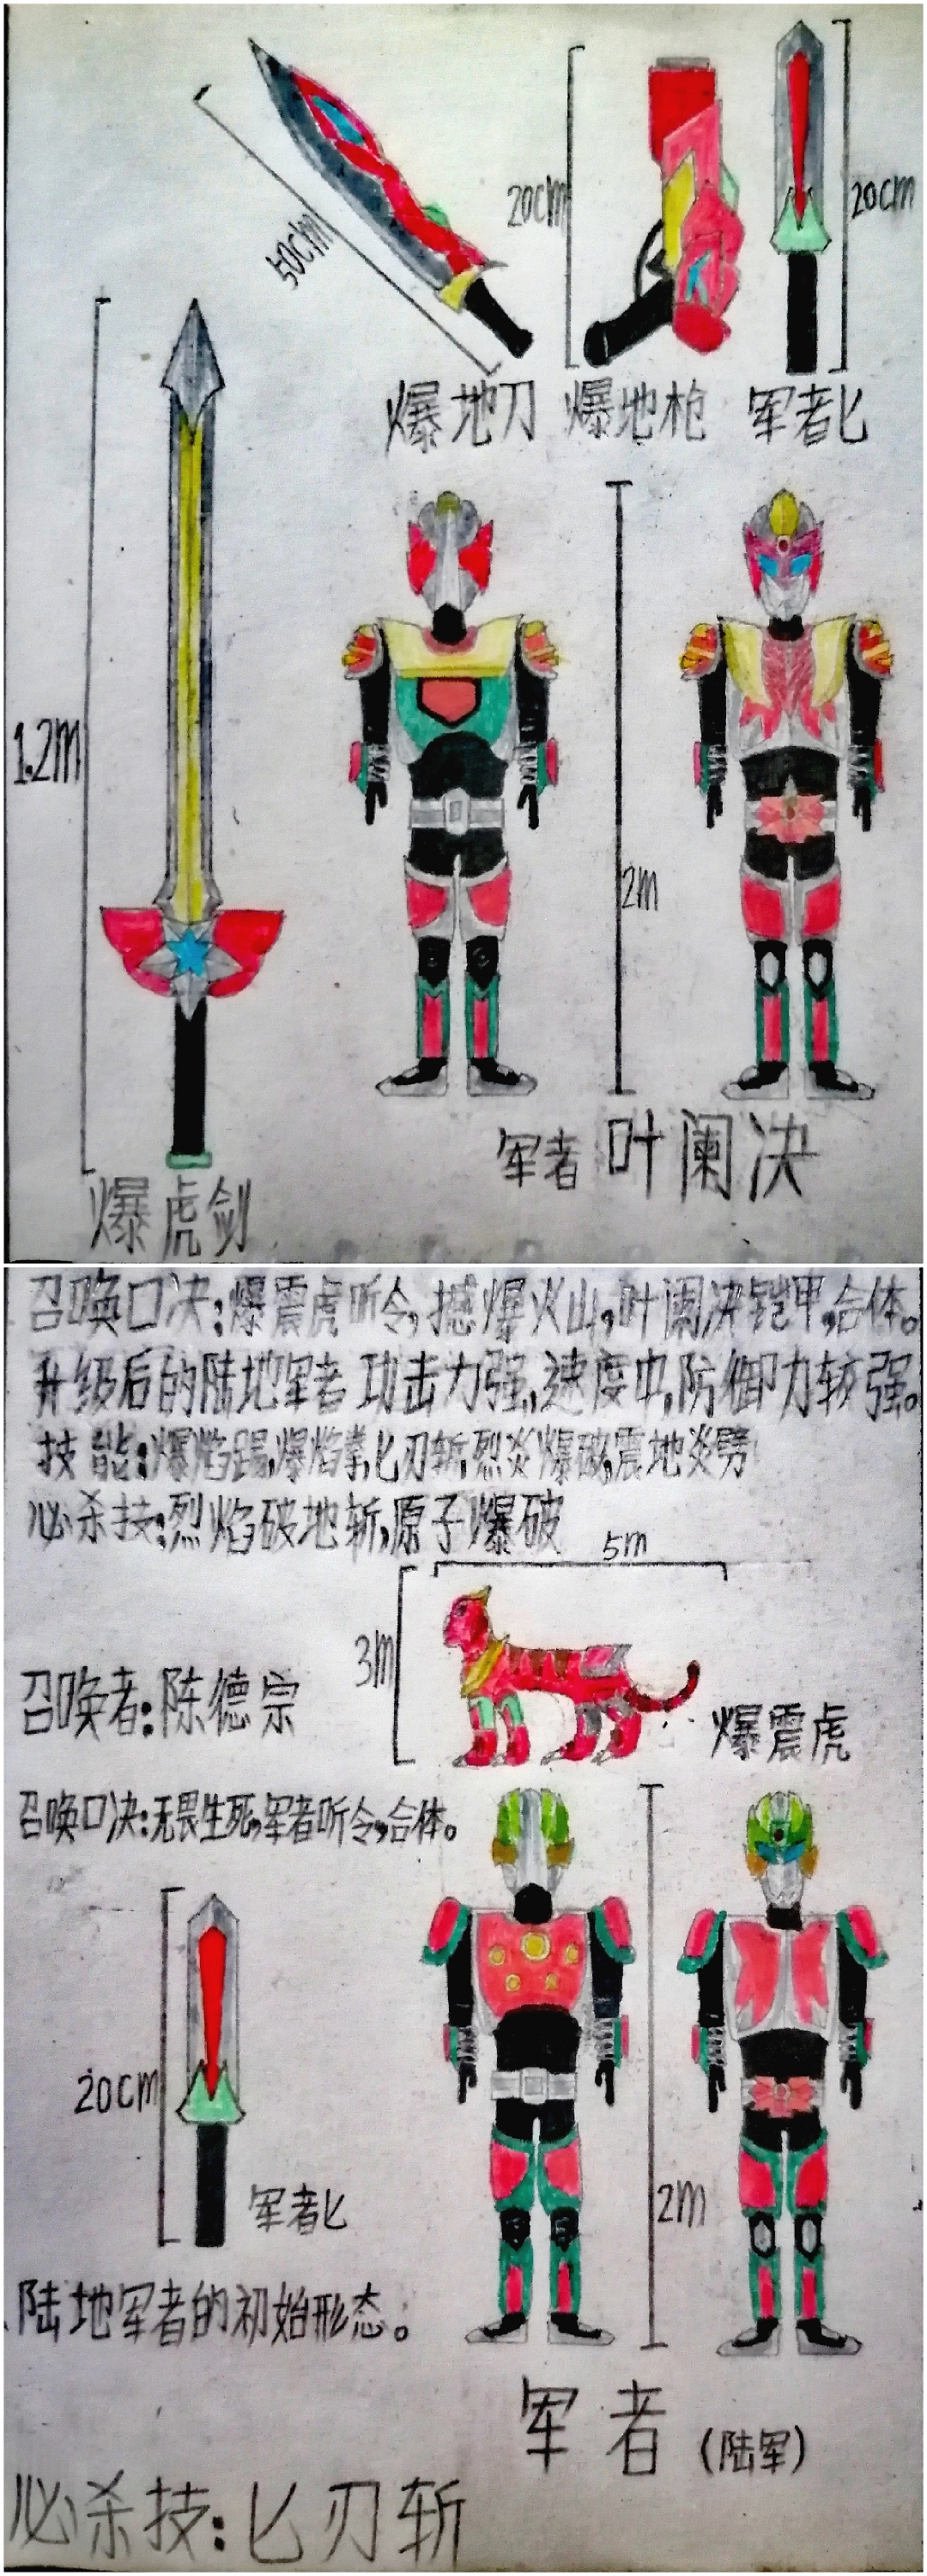 50cm
20cm
20cm
爆地刀 爆地枪 军者匕
1.2m
2m
军者 叶阑决
爆虎剑
召唤口决:爆震虎听令,撼爆火山,叶阑决铠甲,合体。
升级后的陆地军者 功击力强,速度中,防御力较强。
技能:爆焰踢,爆焰拳,匕刃斩,烈炎爆破,震地炎劈
必杀技:烈焰破地斩,原子爆破
5m
3m
召唤者:陈德宗
爆震虎
召唤口决:无畏生死,军者听令,合体。
20cm
军者匕
2m
陆地军者的初始形态。
军者 (陆军)
必杀技:匕刃斩